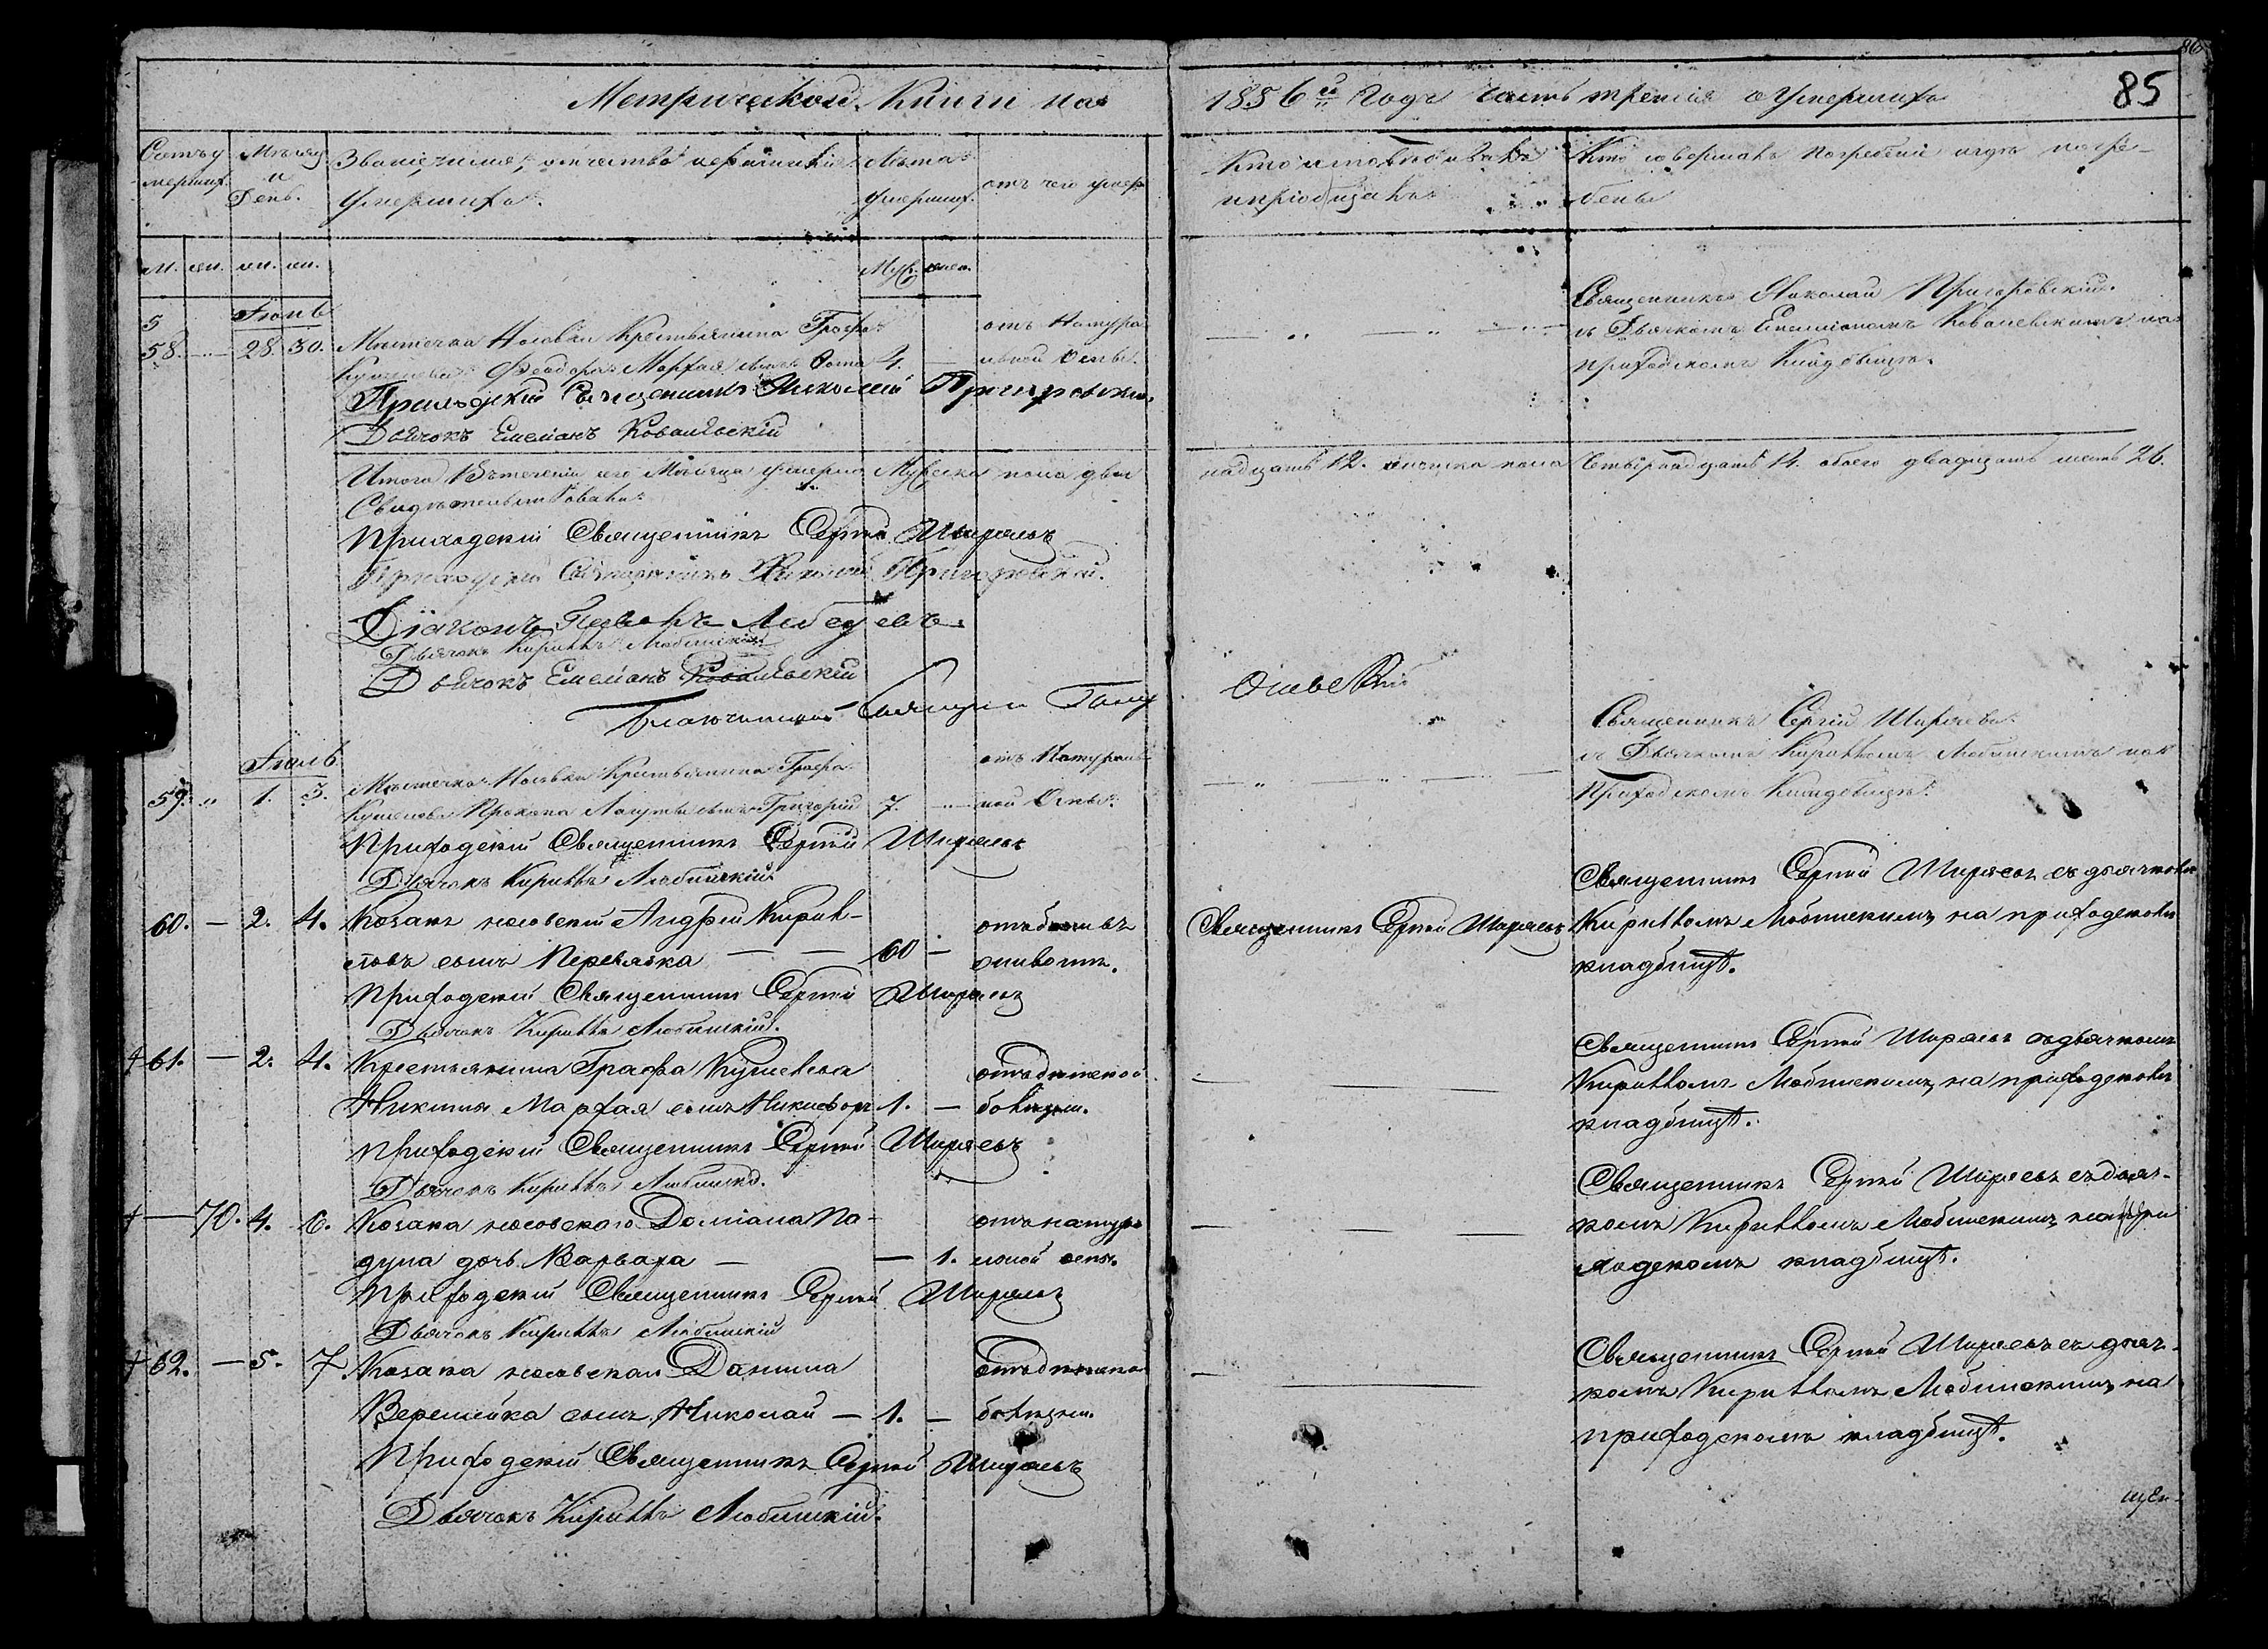 Метрической Книги на
1856го Года часть третія о Умершихъ
85
86
Счетъ у
мершихъ.
Мѣсяцъ
и
День.
Званіе, имя, отчество и фамилія
Умершихъ.
Лѣта
Умершихъ.
отъ чего умеръ
Кто исповѣдывалъ
и пріобщалъ
Кто совершалъ погребеніе и гдѣ погре-
бены
М. жен. м. ж.
Муж. жен.
Іюнь
5
58. 28. 30. Мѣстечка Носовки Крестьянина Графа
Кушелева Феодора Марфая сынъ Фома 4. —
отъ Натура
льной Оспы.
Священникъ Николай Пригоровскій
съ Дьячкомъ Емельяномъ Ковалевскимъ на
приходскомъ Кладбищѣ.
Приходскій Священникъ Николай Пригоровскій.
Дьячокъ Емеліанъ Ковалевскій
Итого въ теченіи сего Мѣсяца умерло Мужеска пола две
надцать 12. женска пола Четырнадцать 14. обоего двадцать шесть 26.
Свидѣтельствовали:
Приходскій Священникъ Сергій Ширяевъ
Приходскій Священникъ Николай Пригоровскій.
Діаконъ Лебедевъ.
Дьячокъ Кириллъ Любинскій
Дьячокъ Емеліанъ Ковалевскій
Благочинный
Іюль
59. „ 1. 3. Мѣстечка Носовки Крестьянина Графа
Кушелева Прокопа сынъ Григорій 7. —
отъ Натураль
ной Оспы.
Священникъ Сергій Ширяевъ
съ Дьячкомъ Кирилломъ Любинскимъ на
Приходскомъ Кладбищѣ.
Приходскій Священникъ Сергій Ширяевъ
Дьячокъ Кириллъ Любинскій
60. — 2. 4. Козакъ носовскій Андрей Кирил-
ловъ сынъ Перевязка — — 60 —
отъ боли въ
животѣ.
Священникъ Сергій Ширяевъ
Священникъ Сергій Ширяевъ съ дьячкомъ
Кирилломъ Любинскимъ, на приходскомъ
кладбищѣ.
Приходскій Священникъ Сергій Ширяевъ
Дьячокъ Кириллъ Любинскій.
61. — 2. 4. Крестьянина Графа Кушелева
Никиты Марфая сынъ Никифоръ 1. —
отъ дѣтской
болѣзни.
Священникъ Сергій Ширяевъ съ дьячкомъ
Кирилломъ Любинскимъ, на приходскомъ
кладбищѣ.
Приходскій Священникъ Сергій Ширяевъ
Дьячокъ Кириллъ Любинскій.
— 70. 4. 6. Козака носовского Даміана Па-
дуна дочь Варвара — — 1.
отъ натура
льной оспы.
Священникъ Сергій Ширяевъ съ дьяч-
комъ Кирилломъ Любинскимъ, на при
ходскомъ кладбищѣ.
Приходскій Священникъ Сергій Ширяевъ
Дьячокъ Кириллъ Любинскій
62. — 5. 7. Козака носовского Даніила
Веремійка сынъ Николай — 1. —
отъ дѣтской
болѣзни.
Священникъ Сергій Ширяевъ съ дьяч-
комъ Кирилломъ Любинскимъ, на
приходскомъ кладбищѣ.
Приходскій Священникъ Сергій Ширяевъ
Дьячокъ Кириллъ Любинскій.